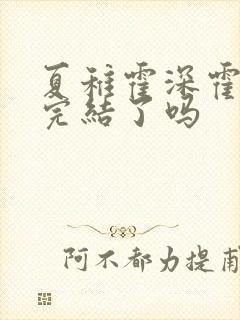 夏稚霍深霍
完結了吗
阿不都力提甫